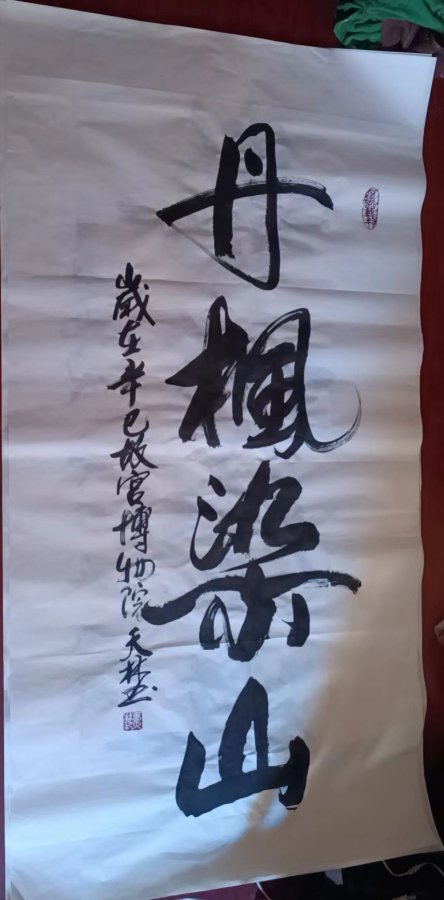 丹楓染山
歲在辛巳故宮博物院天林書